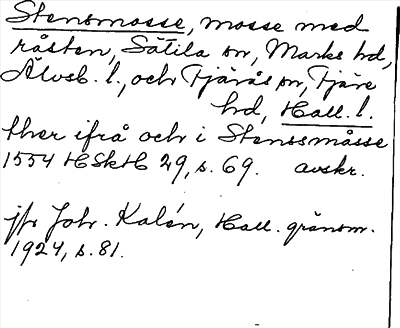 Stensmosse, mosse med
råsten, Sätila sn, Marks hd,
Älvsb. l., och Tjärås sn, Fjäre
hd, Hall. l.
ther ifrå och i Stenssmåsse
1554 HSkH 29, s. 69. avskr.
jfr Joh. Kalén, Hall. gränsm.
1924, s. 81.